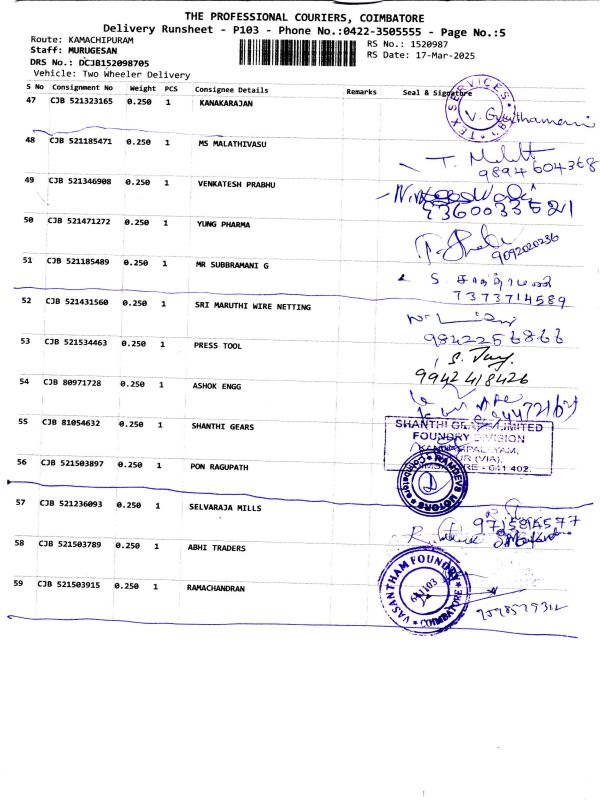 THE PROFESSIONAL COURIERS, COIMBATORE
Delivery Runsheet - P103 - Phone No.:0422-3505555 - Page No.:5
Route: KAMACHIPURAM
RS No.: 1520987
Staff: MURUGESAN
RS Date: 17-Mar-2025
DRS No.: DCJB152098705
Vehicle: Two Wheeler Delivery
S No Consignment No Weight PCS Consignee Details Remarks Seal & Signature
47 CJB 521323165 0.250 1 KANAKARJAN
TEX SERVICES CBE
48 CJB 521185471 0.250 1 MS MALATHIVASU
9894604368
49 CJB 521346908 0.250 1 VENKATESH PRABHU
9360033521
50 CJB 521471272 0.250 1 YUNG PHARMA
9092020236
51 CJB 521185489 0.250 1 MR SUBBRAMANI G
7373714589
52 CJB 521431560 0.250 1 SRI MARUTHI WIRE NETTING
9842256866
53 CJB 521534463 0.250 1 PRESS TOOL
9942418426
54 CJB 80971728 0.250 1 ASHOK ENGG
55 CJB 81054632 0.250 1 SHANTHI GEARS
SHANTHI GEARS LIMITED
FOUNDRY DIVISION
COIMBATORE - 641 402.
56 CJB 521503897 0.250 1 PON RAGUPATH
MOTORS
57 CJB 521236093 0.250 1 SELVARAJA MILLS
58 CJB 521503789 0.250 1 ABHI TRADERS
59 CJB 521503915 0.250 1 RAMACHANDRAN
VASANTHAM FOUNDRY
641103
COIMBATORE